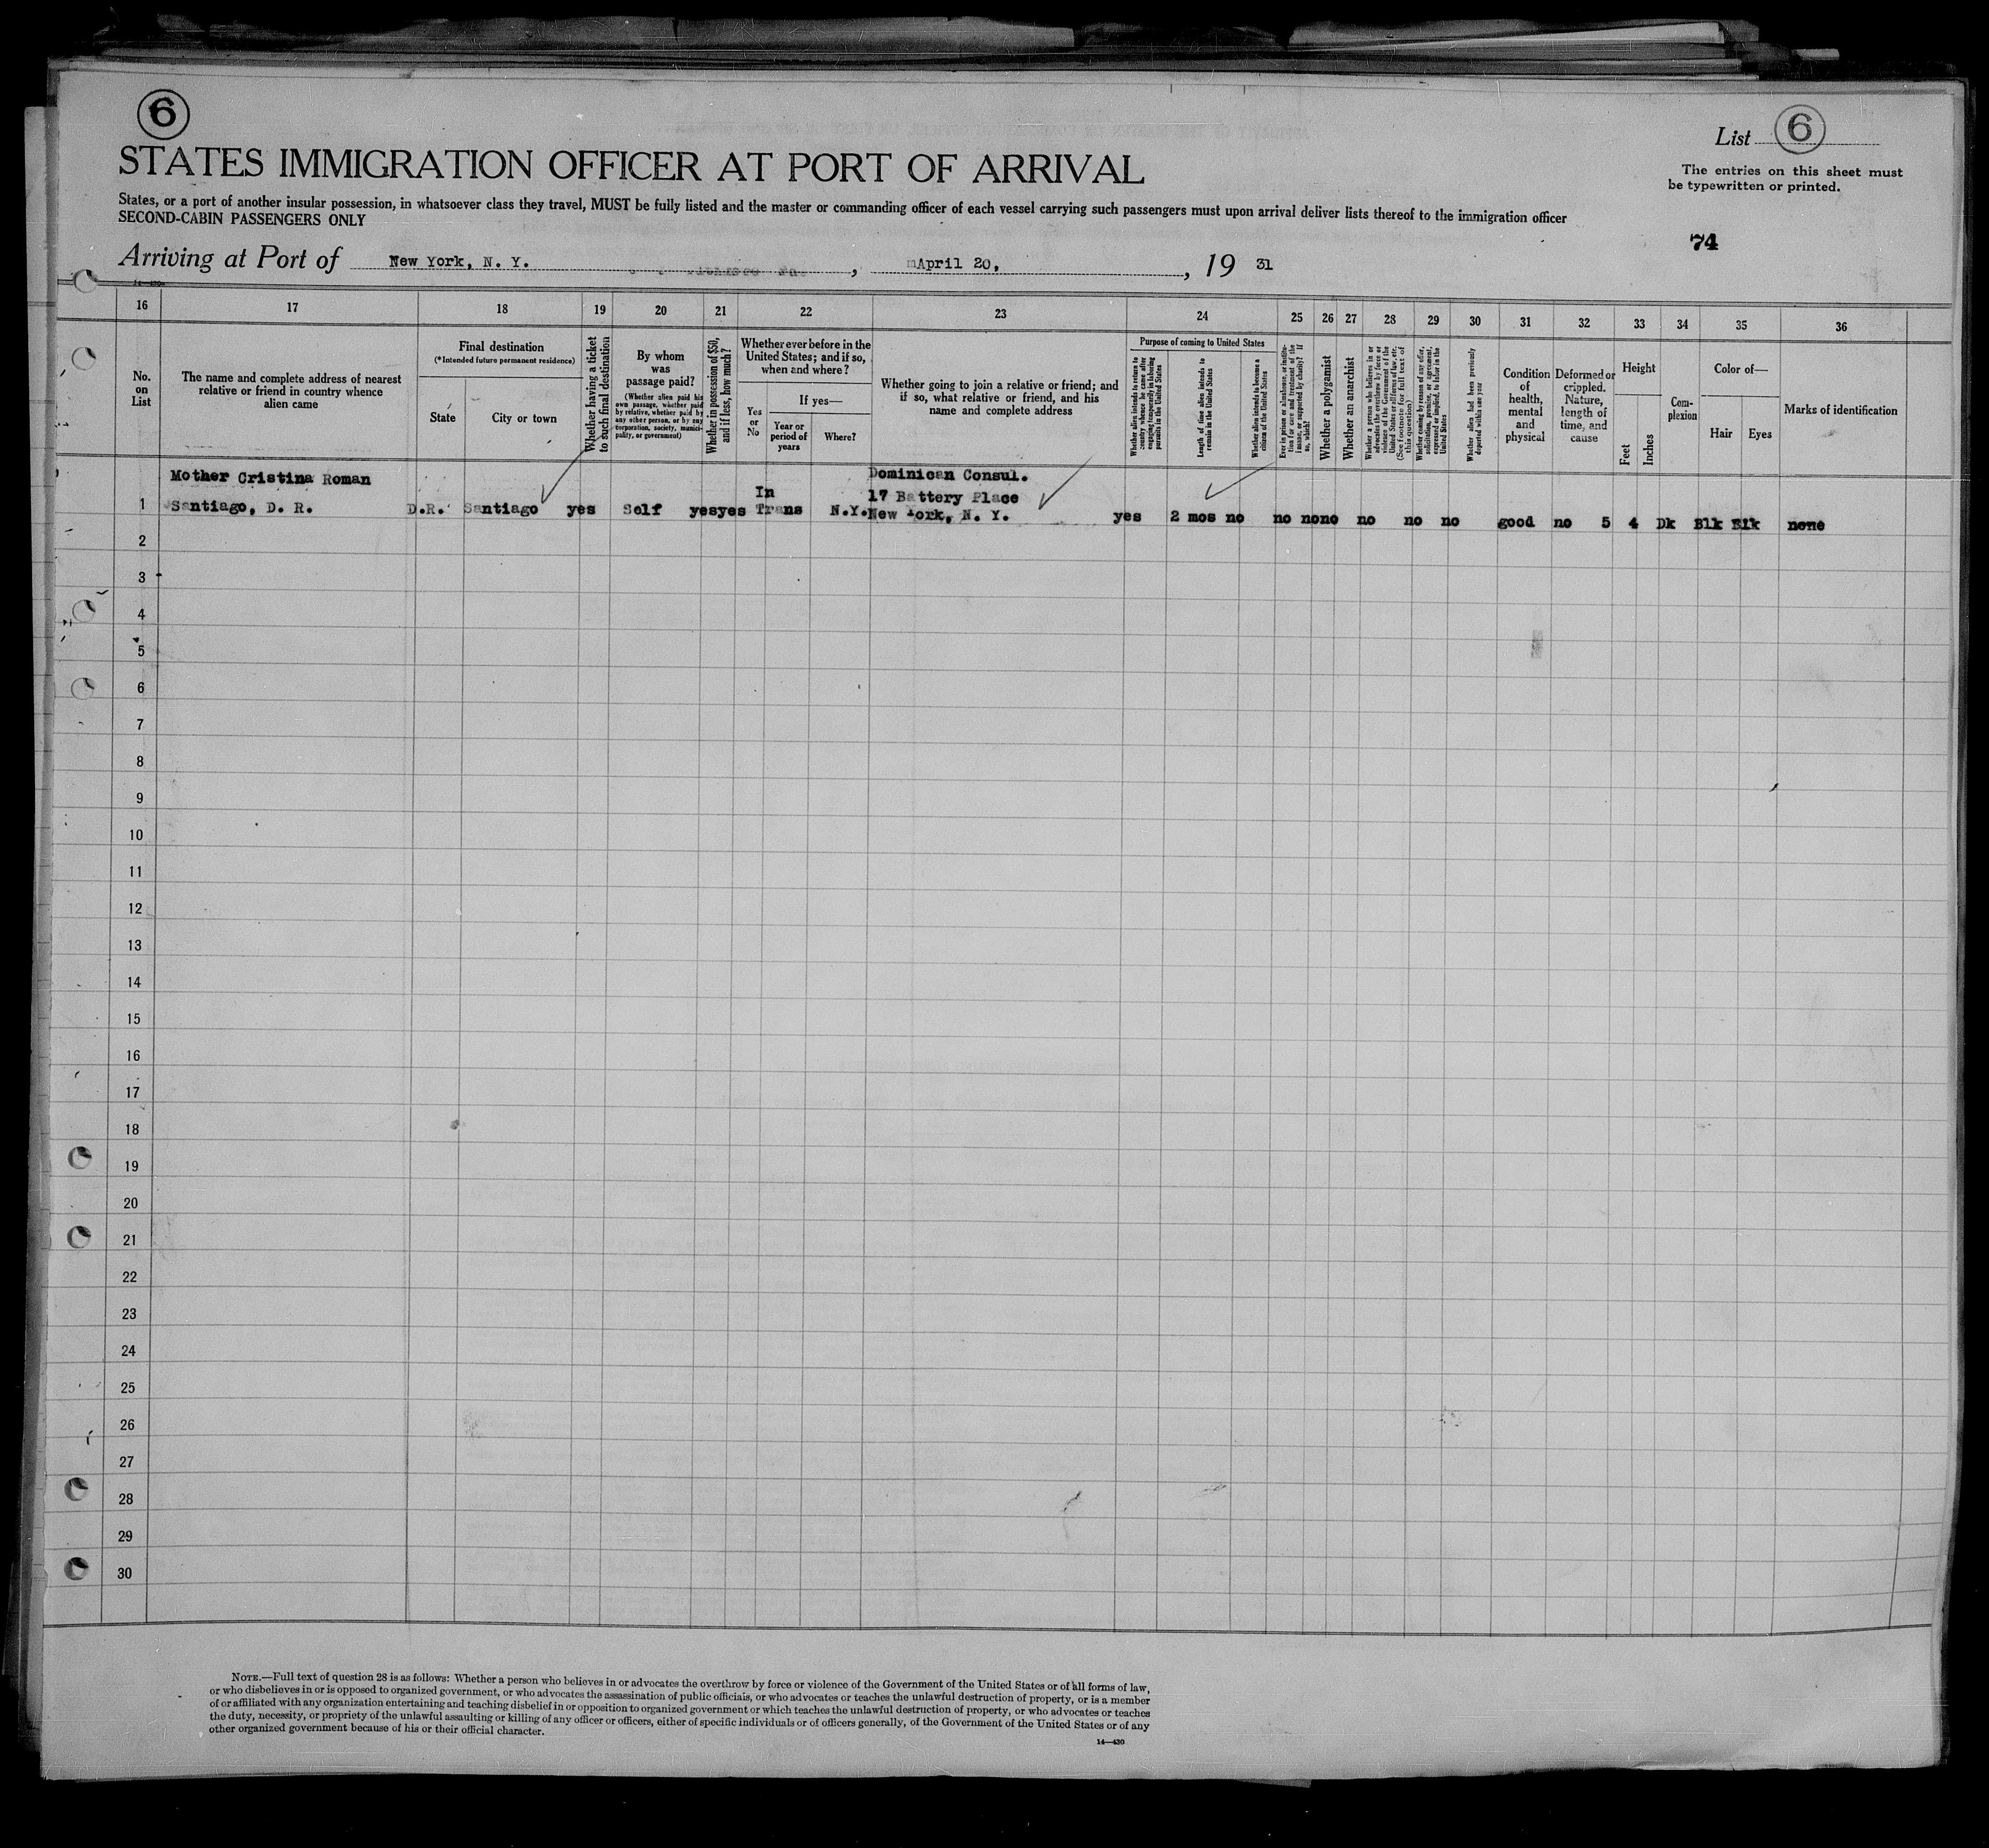 6
List 6
STATES IMMIGRATION OFFICER AT PORT OF ARRIVAL
The entries on this sheet must
be typewritten or printed.
States, or a port of another insular possession, in whatsoever class they travel, MUST be fully listed and the master or commanding officer of each vessel carrying such passengers must upon arrival deliver lists thereof to the immigration officer
SECOND-CABIN PASSENGERS ONLY
74
Arriving at Port of New York, N. Y. , April 20, , 19 31
16 17 18 19 20 21 22 23 24 25 26 27 28 29 30 31 32 33 34 35 36
No.
on
List
The name and complete address of nearest
relative or friend in country whence
alien came
Final destination
(*Intended future permanent residence)
State
City or town
Whether having a ticket
to such final destination
By whom
was
passage paid?
(Whether alien paid his
own passage, whether paid
by relative, whether paid by
any other person, or by any
corporation, society, munici-
pality, or government)
Whether in possession of $50,
and if less, how much?
Whether ever before in the
United States; and if so,
when and where?
Yes
or
No
If yes—
Year or
period of
years
Where?
Whether going to join a relative or friend; and
if so, what relative or friend, and his
name and complete address
Purpose of coming to United States
Whether alien intends to return to
country whence he came after
engaging temporarily in laboring
pursuits in the United States
Length of time alien intends to
remain in the United States
Whether alien intends to become a
citizen of the United States
Ever in prison or almshouse, or institu-
tion for care and treatment of the
insane, or supported by charity? If
so, which?
Whether a polygamist
Whether an anarchist
Whether a person who believes in or
advocates the overthrow by force or
violence of the Government of the
United States or all forms of law, etc.
(See footnote for full text of
this question)
Whether coming by reason of any offer,
solicitation, promise, or agreement,
expressed or implied, to labor in the
United States
Whether alien had been previously
deported within one year
Condition
of
health,
mental
and
physical
Deformed or
crippled.
Nature,
length of
time, and
cause
Height
Feet
Inches
Com-
plexion
Color of—
Hair
Eyes
Marks of identification
Mother Cristina Roman
Dominican Consul.
In
17 Battery Place
1 Santiago, D. R. D.R. Santiago yes Self yes yes Trans N.Y. New York, N. Y. yes 2 mos no no no no no no no good no 5 4 Dk Blk Blk none
2
3
4
5
6
7
8
9
10
11
12
13
14
15
16
17
18
19
20
21
22
23
24
25
26
27
28
29
30
NOTE.—Full text of question 28 is as follows: Whether a person who believes in or advocates the overthrow by force or violence of the Government of the United States or of all forms of law,
or who disbelieves in or is opposed to organized government, or who advocates the assassination of public officials, or who advocates or teaches the unlawful destruction of property, or is a member
of or affiliated with any organization entertaining and teaching disbelief in or opposition to organized government or which teaches the unlawful destruction of property, or who advocates or teaches
the duty, necessity, or propriety of the unlawful assaulting or killing of any officer or officers, either of specific individuals or of officers generally, of the Government of the United States or of any
other organized government because of his or their official character.
14—430